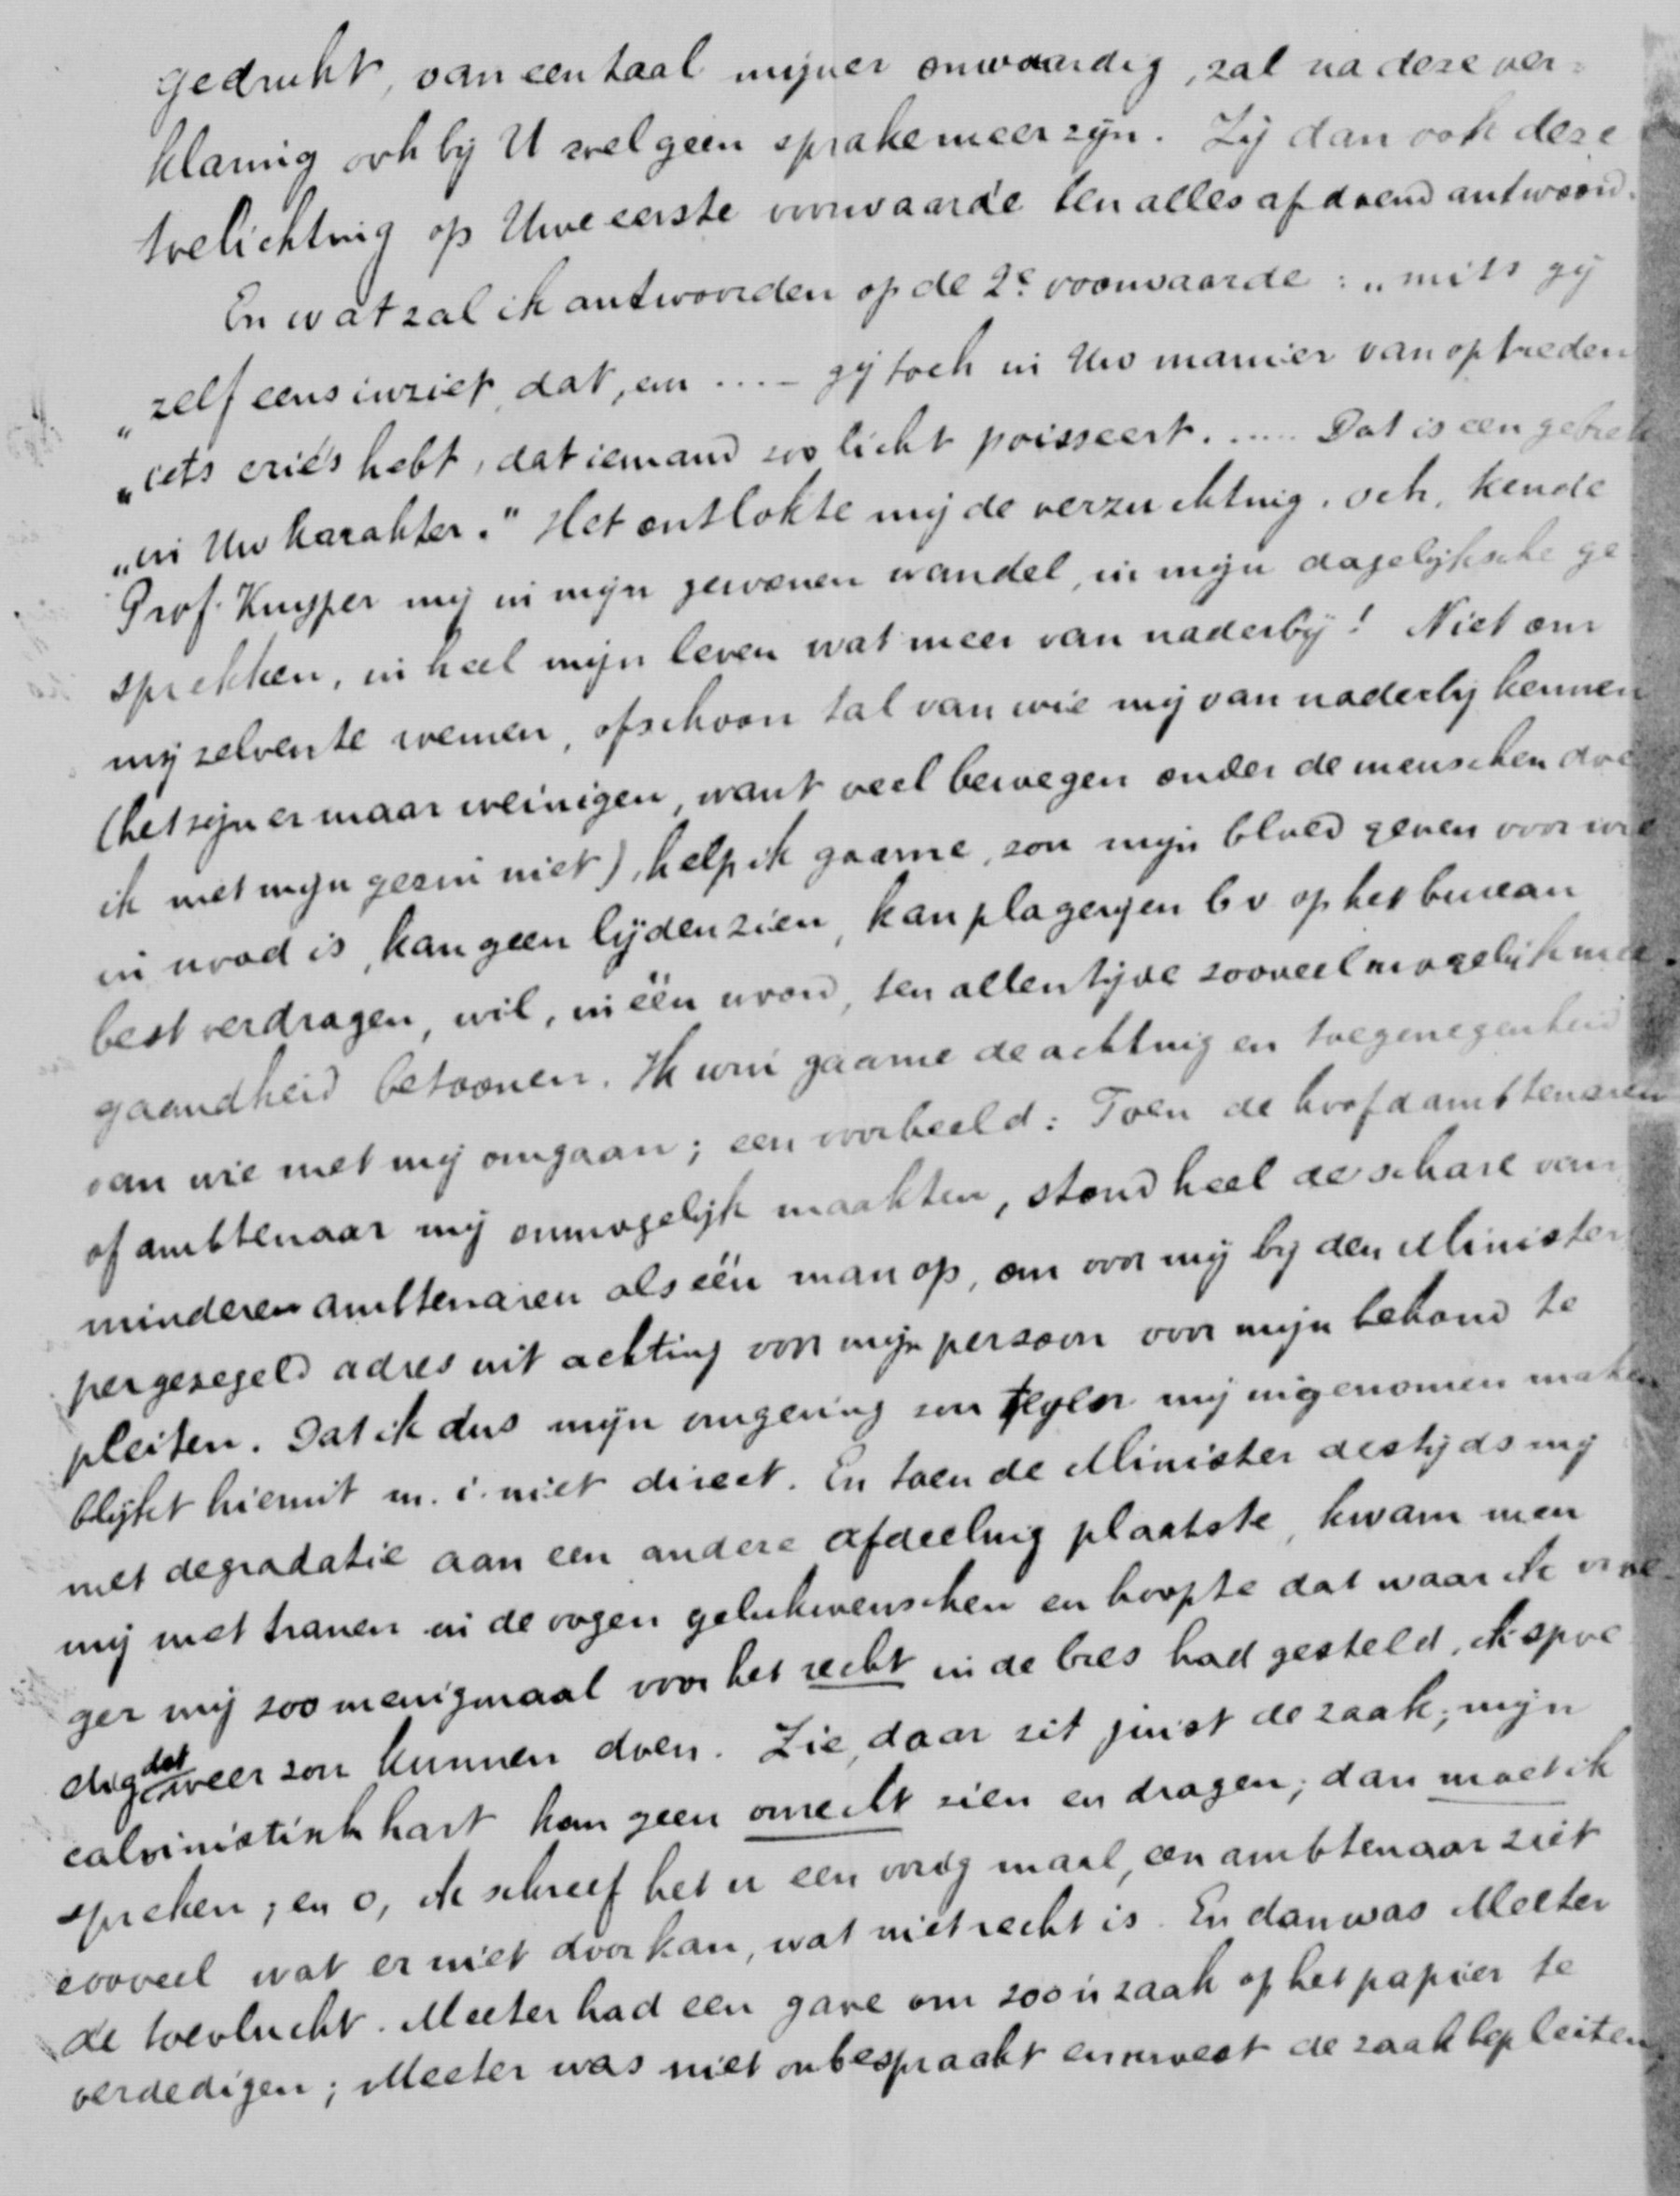 gedrukt, van een taal mijner onwaardig, zal na deze ver=
klaring ook bij U wel geen sprake meer zijn. Zij dan ook deze
toelichting op Uwe eerste voorwaarde ten alles afdoend antwoord.
En wat zal ik antwoorden op de 2e voorwaarde: „mits gij
„zelf eens inziet, dat, en .... gij toch in Uw manier van optreden
„iets eries hebt, dat iemand zoo licht poisseert. ..... Dat is een gebrek
„in Uw karakter." Het ontlokte mij de verzuchting, och, kende
Prof. Kuyper mij in mijn gewonen wandel, in mijn dagelijksche ge
sprekken, in heel mijn leven wat meer van naderbij! Niet om
mij zelven te roemen, ofschoon tal van wie mij van naderbij kennen
(het zijn er maar weinigen, want veel bewegen onder de menschen doe
ik met mijn gezin niet), help ik gaarne, zou mijn bloed geven voor wie
in nood is, kan geen lijden zien, kan plagerijen bv op het bureau
best verdragen, wil, in één woord, ten allen tijde zooveel mogelijk mee
gaandheid betoonen. Ik win gaarne de achting en toegenegenheid
van wie met mij omgaan; een voorbeeld: Toen de hoofdambtenaren
of ambtenaar mij onmogelijk maakten, stond heel de schare van
minderen ambtenaren als één man op, om voor mij bij den Minister
per gezegeld adres uit achting voor mijn persoon voor mijn behoud te
pleiten. Dat ik dus mijn omgeving zou tegen mij ingenomen maken
blijkt hieruit m. i. niet direct. En toen de Minister destijds mij
met degradatie aan een andere afdeeling plaatste, kwam men
mij met tranen in de oogen gelukwenschen en hoopte dat waar ik vroe
ger mij zoo menigmaal voor het recht in de bres had gesteld, ik spoe
dig dat weer zou kunnen doen. Zie, daar zit juist de zaak; mijn
calvinistisch hart kan geen onrecht zien en dragen; dan moet ik
spreken; en o, ik schreef het u een vorig maal, een ambtenaar ziet
zooveel wat er niet door kan, wat niet recht is. En dan was Meeter
de toevlucht. Meeter had een gave om zoo'n zaak op het papier te
verdedigen; Meeter was niet onbespraakt en wist de zaak bepleiten,